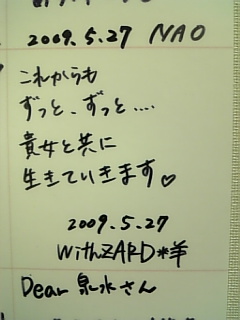 2009.5.27 NAO
これからも
ずっと、ずっと....
貴女と共に
生きていきます♡
2009.5.27
WithZARD*羊
Dear 泉水さん